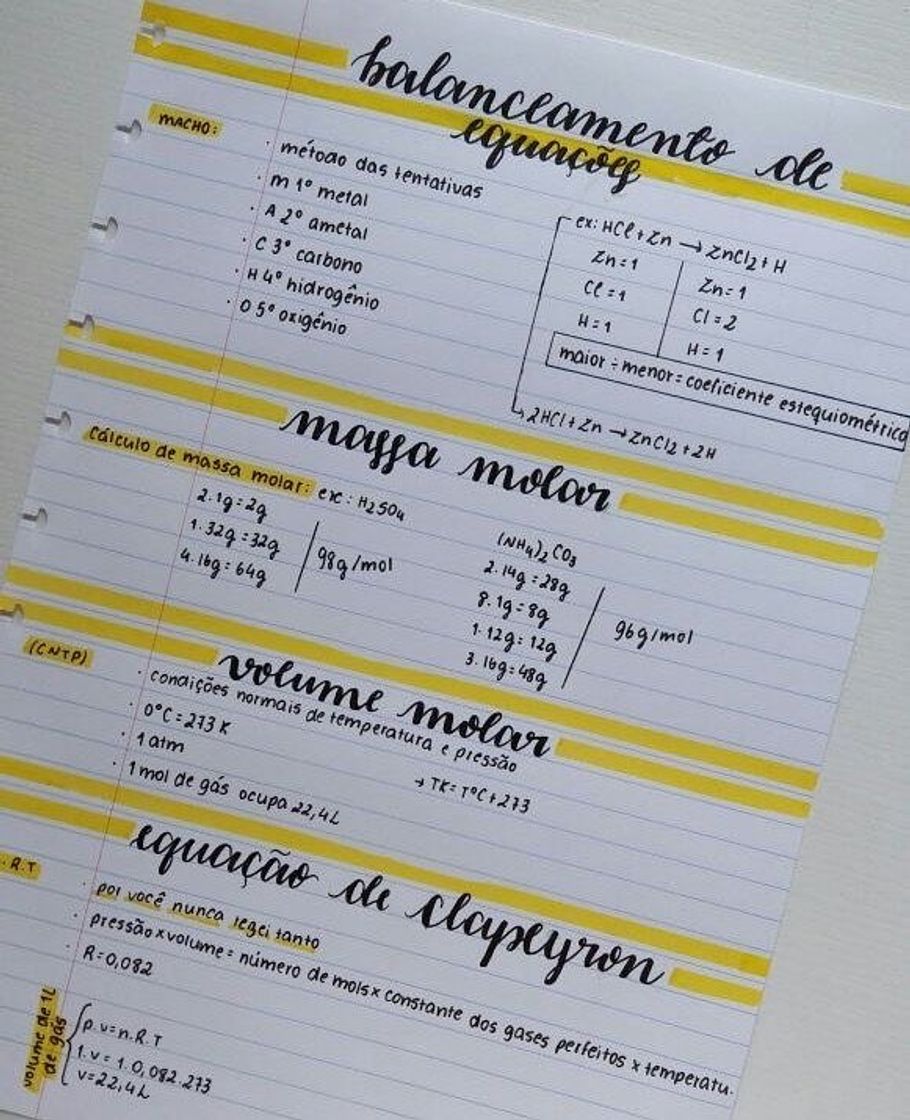 balanceamento de
equações
MACHO:
· método das tentativas
· M 1º metal
· A 2º ametal
· C 3º carbono
· H 4º hidrogênio
· O 5º oxigênio
ex: HCl + Zn → ZnCl2 + H
Zn = 1 Zn = 1
Cl = 1 Cl = 2
H = 1 H = 1
maior ÷ menor = coeficiente estequiométrico
2HCl + Zn → ZnCl2 + 2H
massa molar
Cálculo de massa molar: ex: H2SO4
2.1g = 2g
1.32g = 32g
4.16g = 64g
98g/mol
(NH4)2CO3
2.14g = 28g
8.1g = 8g
1.12g = 12g
3.16g = 48g
96g/mol
volume molar
(CNTP)
· condições normais de temperatura e pressão
· 0°C = 273 K
· 1 atm
→ TK = T°C + 273
· 1 mol de gás ocupa 22,4L
equação de Clapeyron
.R.T
· por você nunca rezei tanto
· pressão x volume = número de mols x constante dos gases perfeitos x temperatu.
· R = 0,082
volume de 1L
de gás
p.v = n.R.T
1.v = 1.0,082.273
v = 22,4L